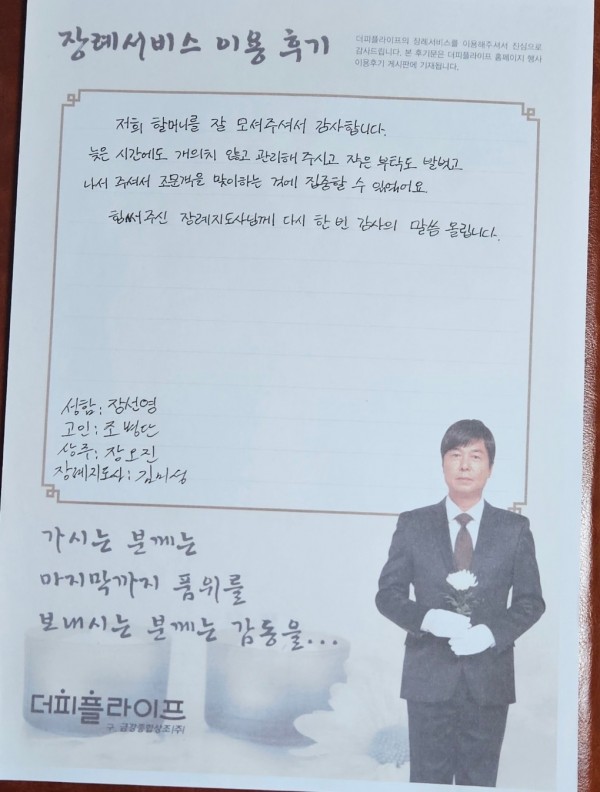 장례서비스 이용 후기
더피플라이프의 장례서비스를 이용해주셔서 진심으로
감사드립니다. 본 후기문은 더피플라이프 홈페이지 행사
이용후기 게시판에 기재됩니다.
저희 할머니를 잘 모셔주셔서 감사합니다.
늦은 시간에도 개의치 않고 관리해 주시고 작은 부탁도 발벗고
나서 주셔서 조문객을 맞이하는 것에 집중할 수 있었어요
힘써주신 장례지도사님께 다시 한 번 감사의 말씀 올립니다.
성함 : 장선영
고인 : 조병단
상주 : 장오진
장례지도사 : 김미성
가시는 분께는
마지막까지 품위를
보내시는 분께는 감동을...
더피플라이프
구. 금강종합상조(주)